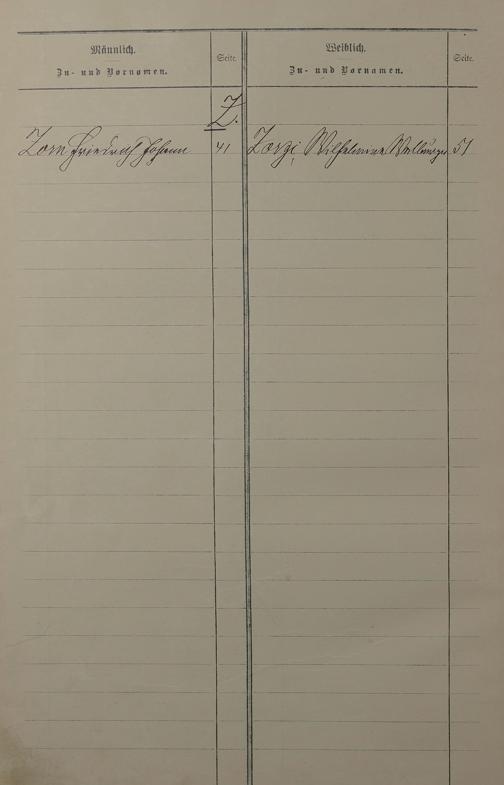 Männlich.
Zu- und Vornamen.
Seite.
Weiblich.
Zu- und Vornamen.
Seite.
Z.
Zorn Friedrich Johann 41
Zorzi, Wilhelmine Wallburga 51